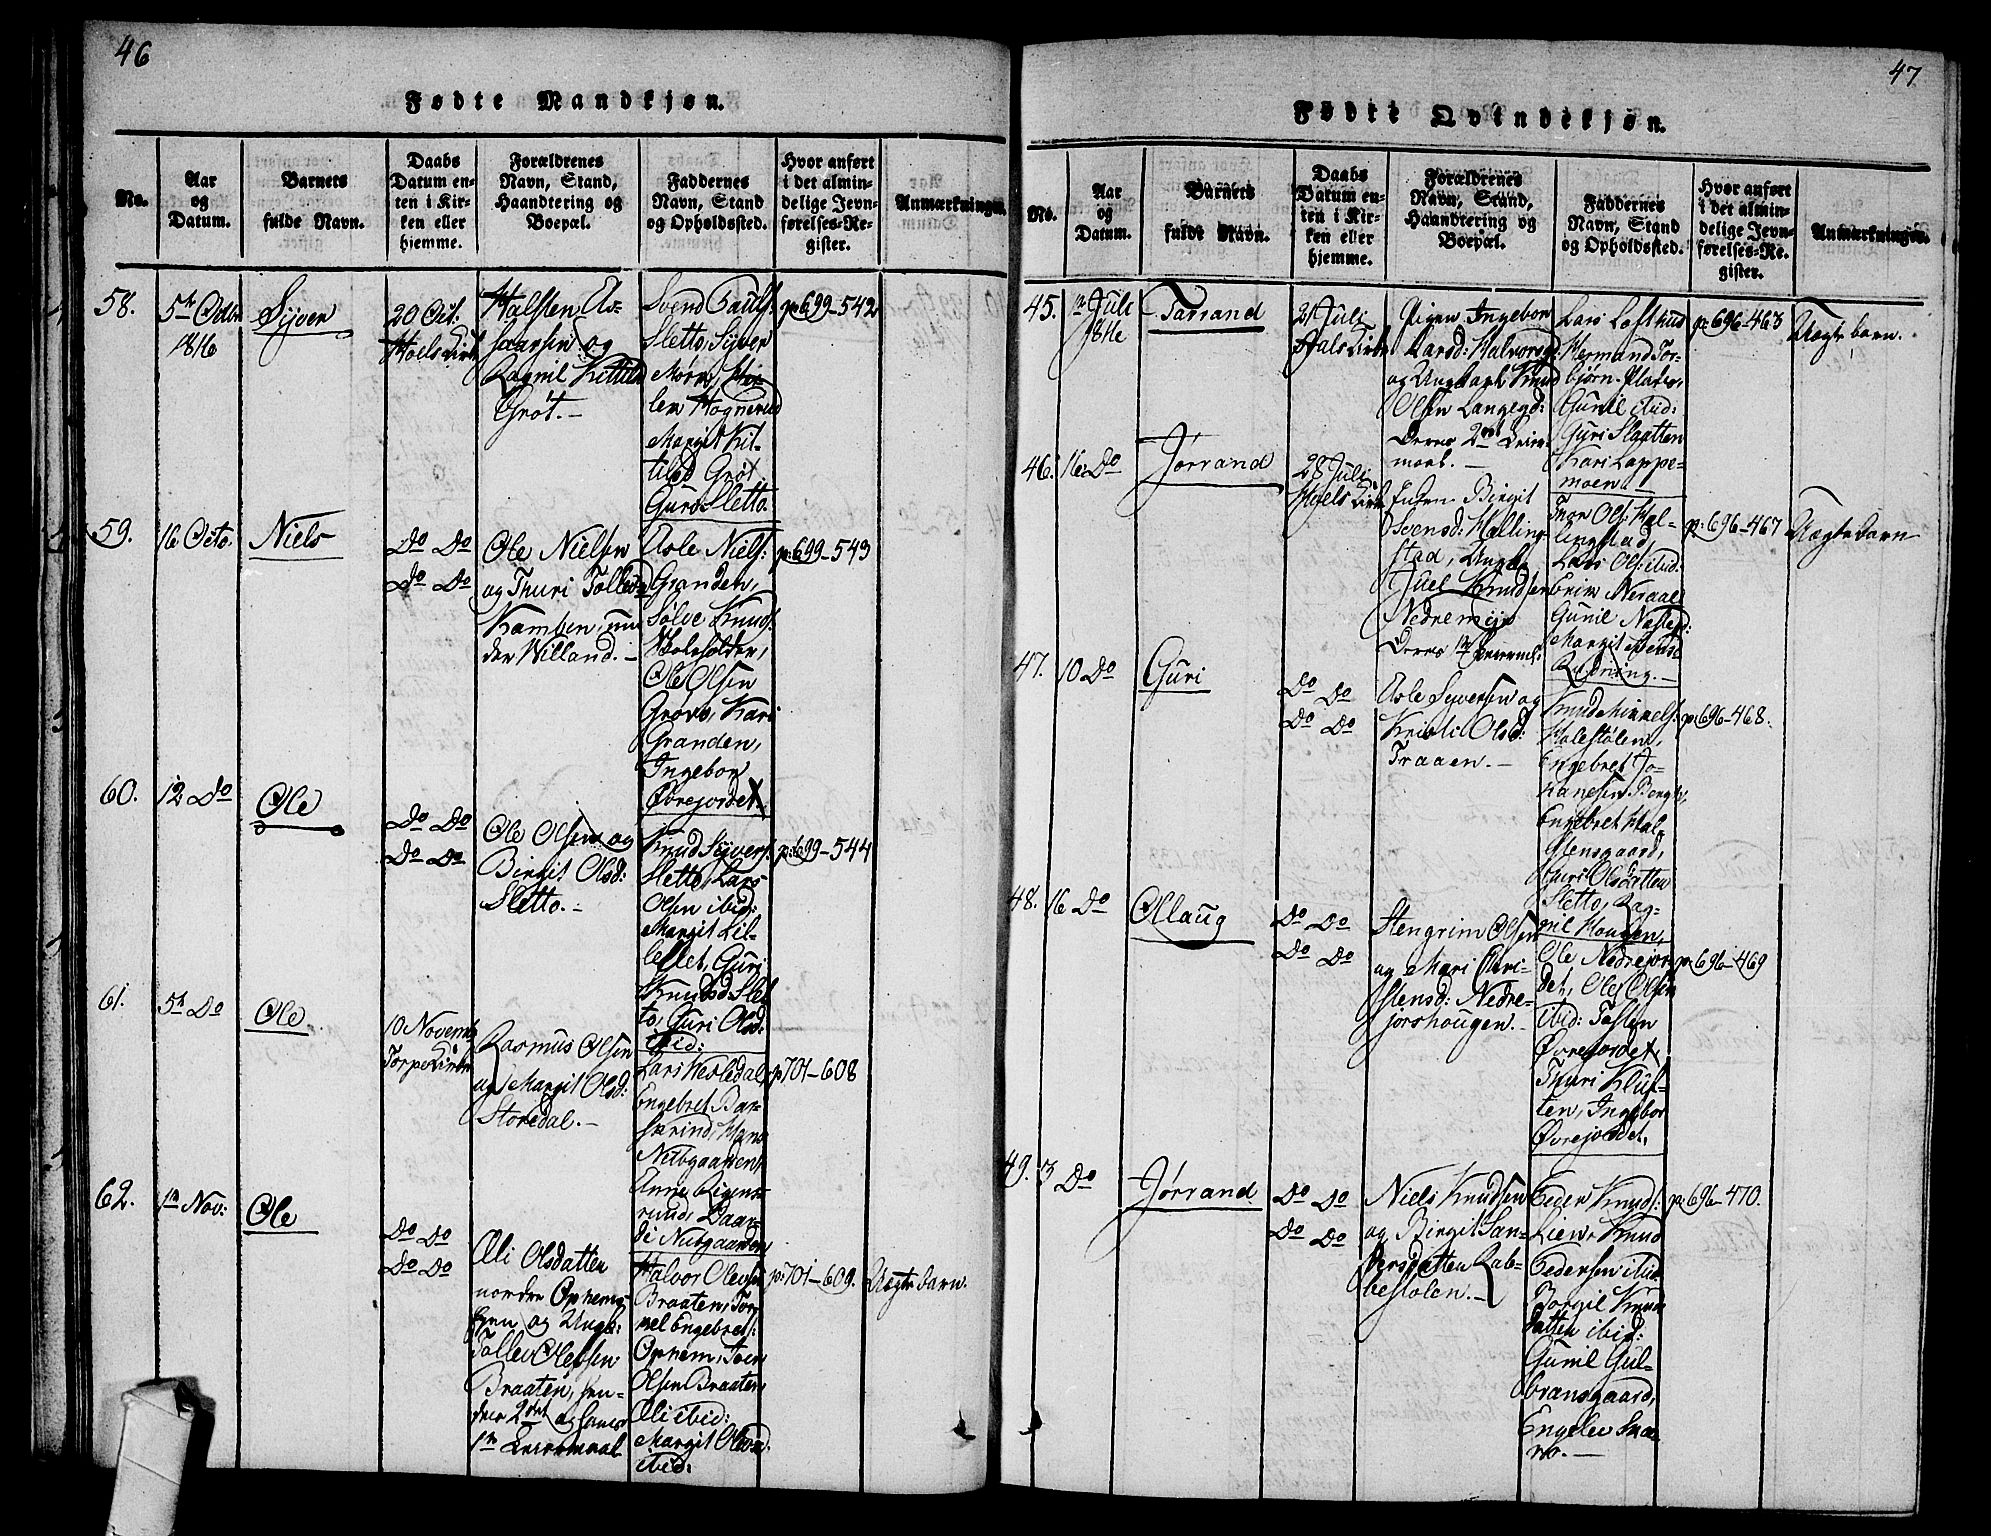 46
Fødte Mandkjøn.
No.
Aar
og
Datum.
Barnets
fulde Navn.
Daabs
Datum en-
ten i Kir-
ken eller
hjemme.
Forældrenes
Navn, Stand,
Haandtering og
Boepæl.
Faddernes
Navn, Stand
og Opholdssted.
Hvor anført
i det almin-
delige Jevn-
førelses-Re-
gister.
Anmærkninger.
58.
5te Octo.
1816
Syver
20 Oct.
Hoels Kirke
Halsten As-
laksen og
Ragnil Kittilsd
Grøt.-
Svend Paulss:
Sletto, Syver
Moen,
Hognerud
Margit Kit-
tilsd Grøt
Guro Sletto.
p:699-542
59.
16 Octo.
Niels
Do Do
Do Do
Ole Nielsen
og Thuri Tollevsd
Kampen, un-
der Villand.-
Asle Niels:
Granden,
Sølve Knuds:
Skoleholder,
Ole Olsen
Grøvo, Kari
Granden,
Ingebor
Øvrejordet.
p:699-543
60.
12 Do
Ole
Do Do
Do Do
Ole Olsen og
Birgit Olsd:
Sletto.-
Knud Syvers:
Sletto, Lars
Olsen ibid:
Margit Lil-
leslet, Guri
Knudsd Slet
to, Guri Olsd:
ibid:
p:699-544
61.
5te Do
Ole
10 Novemb
Torpe Kirke
Rasmus Olsen
og Margit Olsd:
Storedal.-
Lars Hesledal,
Engebret Bar-
skrind, Hans
Nubgaarden,
Anne Rigens-
rund, Baar-
di Nubgaarden
p:701-608
62.
1te Nov:
Ole
Do Do
Do Do
Eli Olsdatter
nordre Ophems-
eyen og Ungk:
Tollev Olessen
Braaten, hen-
des 2det og hans
1te Leiermaal
Halvor Olessen
Braaten, Tor
kel Engebrets:
Ophem, Toer
Olsen Braaten,
Eli ibid:
Margit Olsd.
ibid:
p:701-609.
Uægte barn.
47
Fødte Qvindekjøn.
No.
Aar
og
Datum.
Barnets
fulde Navn.
Daabs
Datum en-
ten i Kir-
ken eller
hjemme.
Forældrenes
Navn, Stand,
Haandtering og
Boepæl.
Faddernes
Navn, Stand
og Opholdssted.
Hvor anført
i det almin-
delige Jevn-
førelses-Re-
gister.
Anmærkninger.
45.
Juli
1816
Jørrand
21 Juli
Aals Kirke
Pigen Ingebor
Larsd: Halvorsg:
og Ungkarl Knud
Olsen Langegd:
Deres 2det Leier-
maal.-
Lars Lofthus
Hermand Tor-
bjørn-Pladse,
Gunil ibid:
Guri Slaatten
Kari Loppe-
moen.-
p:696-463
Uægte barn.
46.
16. Do
Jørrand
28 Juli
Hoels Kirke
Birgit
Svensd: Halling-
stad, Ungk:
Joel Knudsen
Nedremyr
Deres 1te Leierml:
Thor Ols: Hal-
lingstad,
Lars Ols: ibid:
Erik Neraal
Gunil
Margit
Rudning.-
p:696-467
Uægte Barn
47.
10 Do
Guri
Do Do
Do Do
Asle Syversen og
Kristi Olsd:
Traaen.-
Knud Mikkels:
Holestølen,
Engebret Jo-
hansen Bergh,
Engebret Hal-
stensgaard,
Guri Olsdatter
Sletto, Rag-
nil Hougen,
p:696-468.
48.
16 Do
Ollaug
Do Do
Do Do
Stengrim Olsen
og Mari Chri-
stensd: Nedre-
jorshougen.-
Ole Nedrejor-
det, Ole Olsen
ibid: Tosten
Øvrejordet,
Thuri Kluf-
ten, Ingebor
Øvrejordet,
p:696-469
49.
3 Do
Jørrand
Do Do
Do Do
Niels Knudsen
og Birgit San-
dersdatter Rab-
bestolen.-
Peder Knuds:
Lien, Knud
Pedersen ibid
Borgil Knud
datter ibid:
Gunil Gul-
brandsgaard,
Engelev Snaa-
ro.-
p:696-470.